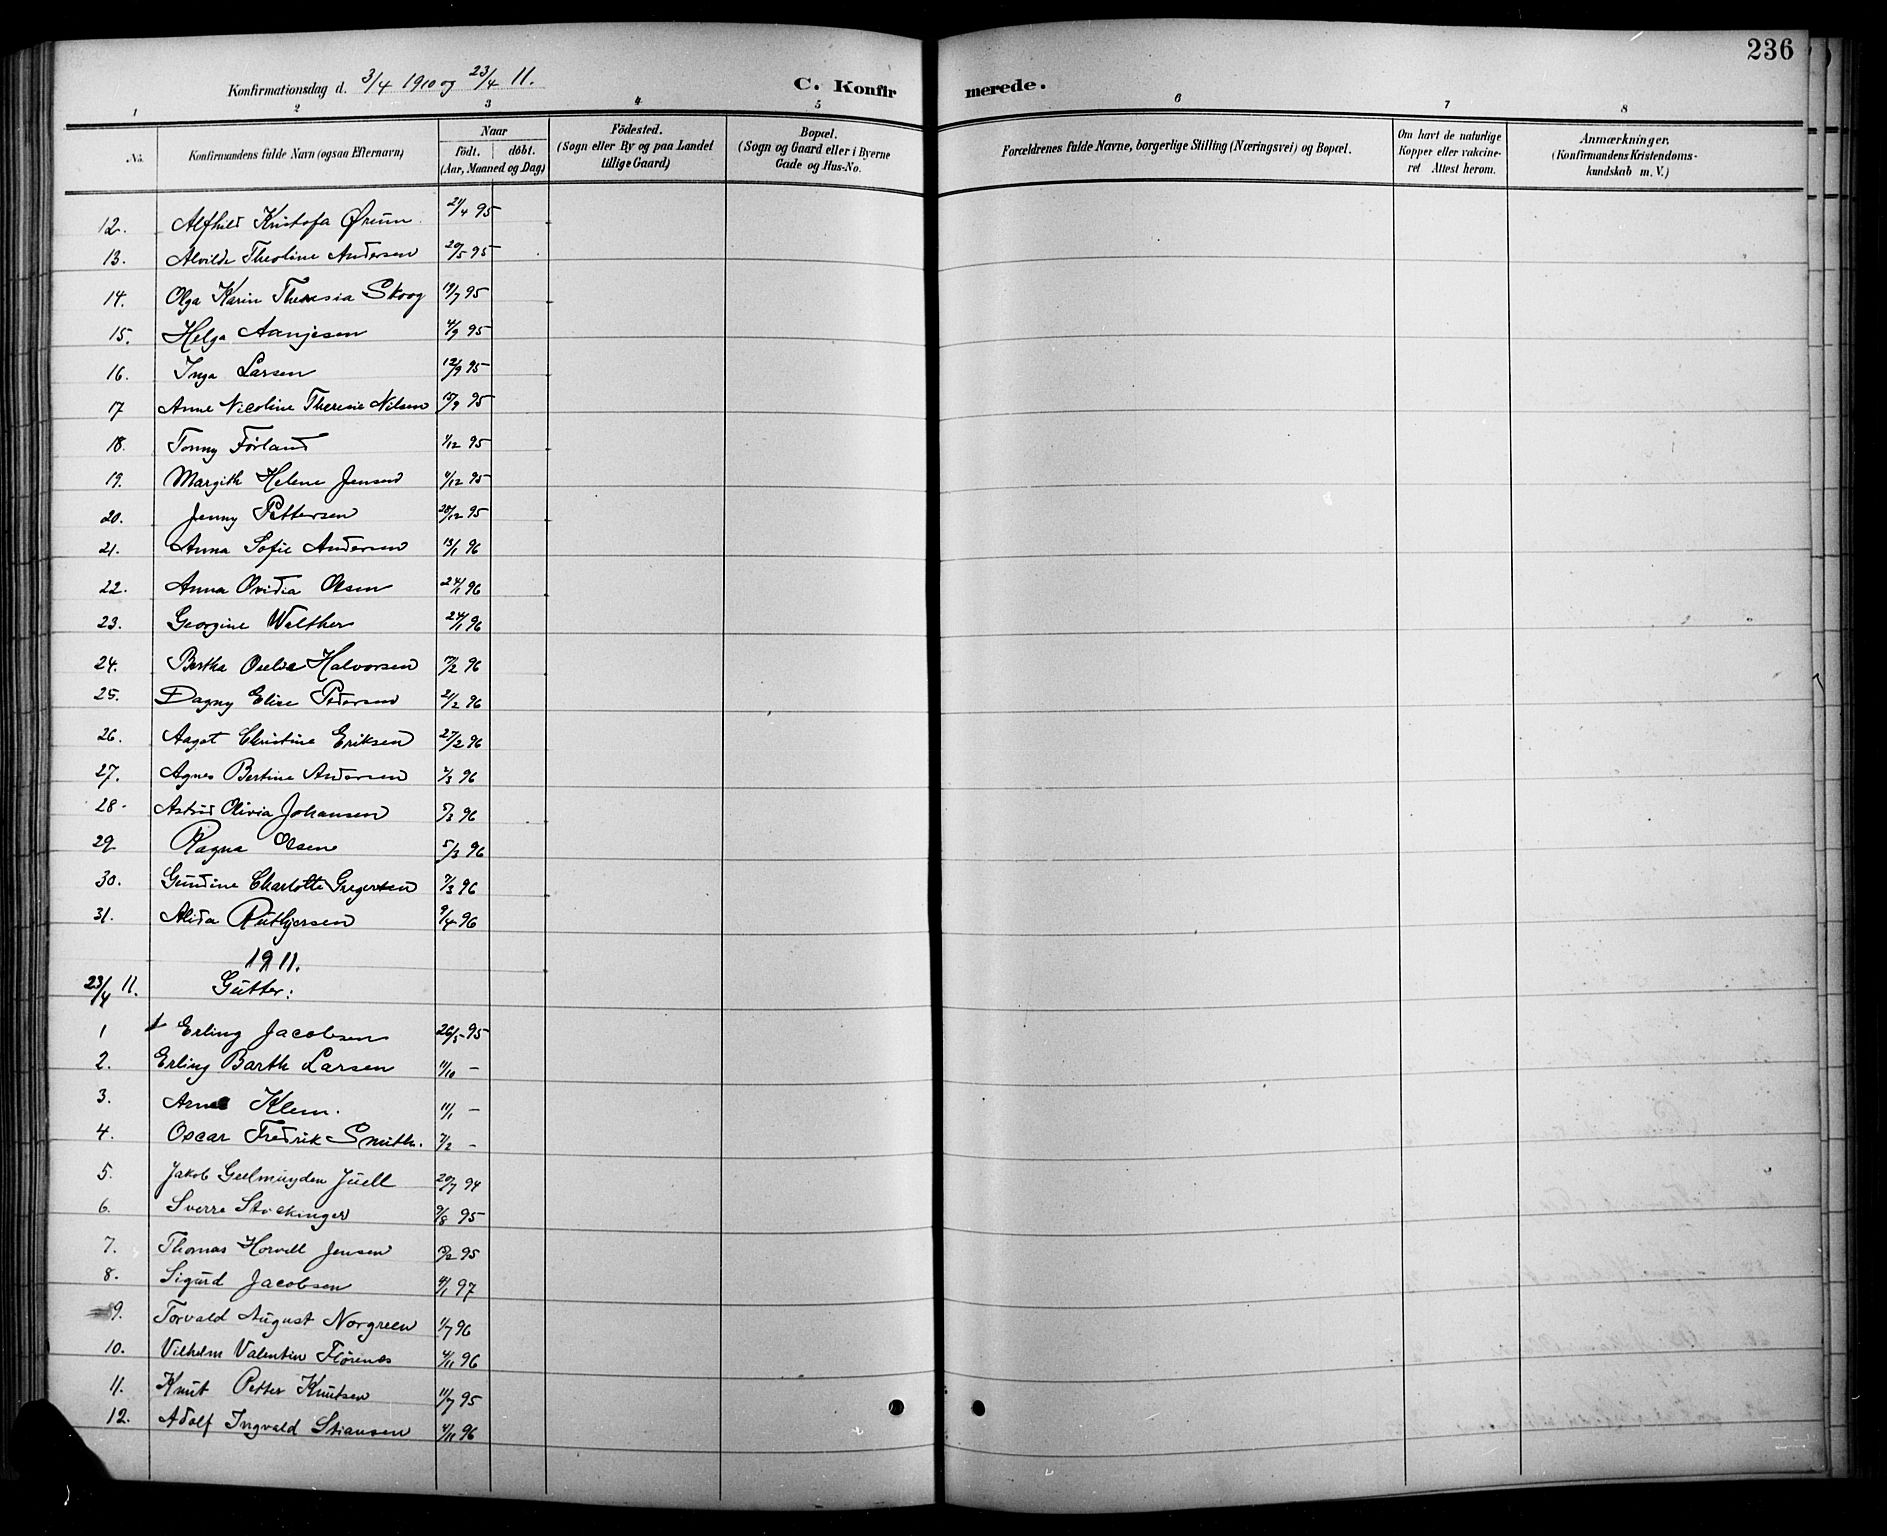 236
Konfirmationsdag d. 3/4 1910 og 23/4 11.
C. Konfirmerede.
1 2 3 4 5 6 7 8
No.
Konfirmandens fulde Navn (ogsaa Efternavn)
Naar
født. døbt.
(Aar, Maaned og Dag)
Födested.
(Sogn eller By og paa Landet
tillige Gaard)
Bopæl.
(Sogn og Gaard eller i Byerne
Gade og Hus-No.
Forældrenes fulde Navne, borgerlige Stilling (Næringsvei) og Bopæl.
Om havt de naturlige
Kopper eller vakcine-
ret Attest herom.
Anmærkninger.
(Konfirmandens Kristendoms-
kundskab m. V.)
12. Alfhild Kristofa Ørum 21/4 95
13. Alvilde Theoline Andersen 20/5 95
14. Olga Karin Theresia Skoog 19/7 95
15. Helga Aanjesen 4/9 95
16. Inga Larsen 12/9 95
17 Anne Nicoline Theresie Nilsen /9 95
18. Tonny Førland 1/12 95
19. Margith Helene Jensen 4/12 95
20. Jenny Pettersen 28/12 95
21. Anna Sofie Andersen 13/1 96
22. Anna Ovidia Olsen 24/1 96
23. Georgine Walther 24/1 96
24. Bertha Halvorsen /2 96
25. Dagny Elise Pedersen 21/2 96
26. Aagot Christine Eriksen 27/2 96
27. Agnes Bertine Andersen 2/3 96
28. Astrid Olivia Johansen 5/3 96
29 Ragna Olsen 5/3 96
30. Gundine Charlotte Gregersen 7/3 96
31. Alida Rutbjersen 9/4 96
1911.
23/4 11. Gutter:
1 Erling Jacobsen 26/5 95
2. Erling Barth Larsen 11/10 –
3. Arne Klem. 11/1 –
4. Oscar Fredrik Smith. 7/2 –
5. Jakob Geelmuyden Juell 20/7 94
6. Sverre Stockinger 9/8 95
7. Thomas Horvell Jensen /2 95
8. Sigurd Jacobsen 4/1 97
9. Torvald August Norgreen 1/7 96
10. Vilhelm Valentin Florenes 4/11 96
11. Knut Petter Knutsen 11/7 95
12. Adolf Ingvald Stiansen 4/11 96